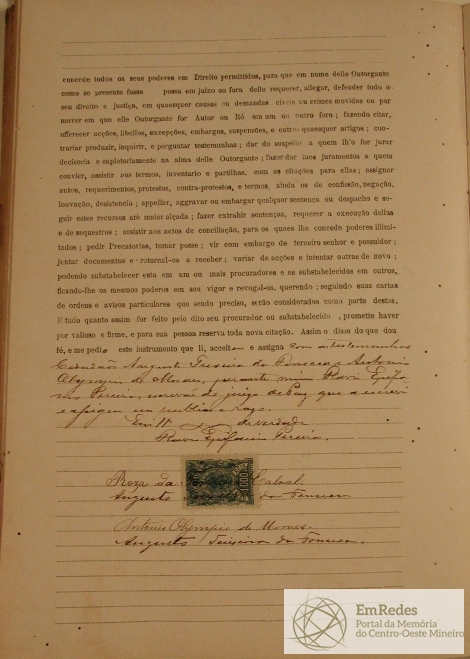 concede todos os seus poderes em Direito permittidos, para que em nome delle Outorgante
como se presente fosse possa em juizo ou fora delle requerer, allegar, defender todo o
seu direito e justiça, em quaesquer causas ou demandas civeis ou crimes movidas ou por
mover em que elle Outorgante for Autor ou Ré em um ou outro foro; fazendo citar,
offerecer acções, libellos, excepções, embargos, suspeições, e outros quaesquer artigos; con-
trariar produzir, inquirir, e perguntar testemunhas; dar de suspeito a quem lh'o for jurar
decisoria e supletoriamente na alma delle Outorgante; fazer dar taes juramentos a quem
convier, assistir aos termos, inventario e partilhas, com as citações para elles; assignar
autos, requerimentos, protestos, contra-protestos, e termos, ainda os de confissão, negação,
louvação, desistencia; appellar, aggravar ou embargar qualquer sentença ou despacho e se-
guir estes recursos até maior alçada; fazer extrahir sentenças, requerer a execução dellas
e de sequestros; assistir aos actos de conciliação, para os quaes lhe concede poderes illimi-
tados; pedir Precatorias, tomar posse; vir com embargo de terceiro senhor e possuidor;
juntar documentos e retornal-os a receber; variar de acções e intentar outras de novo;
podendo substabelecer esta em um ou mais procuradores e os substabelecidos em outros,
ficando-lhe os mesmos poderes em seu vigor e revogal-os, querendo; seguindo suas cartas
de ordens e avisos particulares que sendo preciso, serão considerados como parte destas.
E tudo quanto assim for feito pelo dito seu procurador ou substabelecido, prometto haver
por valioso e firme, e para sua pessoa reserva toda nova citação. Assim o disse do que dou
fé, e me pedio este instrumento que li, acceitou e assigna com as testemunhas
Augusto Teixeira da Fonseca e Antonio
Olympio de Moraes, perante mim
Pereira, escrivão de juizo de Paz que a escrevi
e assigno em publico e raso.
Em tt de verdade
Pereira.
Roza da Cabral
Augusto da Fonseca
1000
Antonio Olympio de Moraes.
Augusto Teixeira da Fonseca.
EmRedes
Portal da Memória
do Centro-Oeste Mineiro